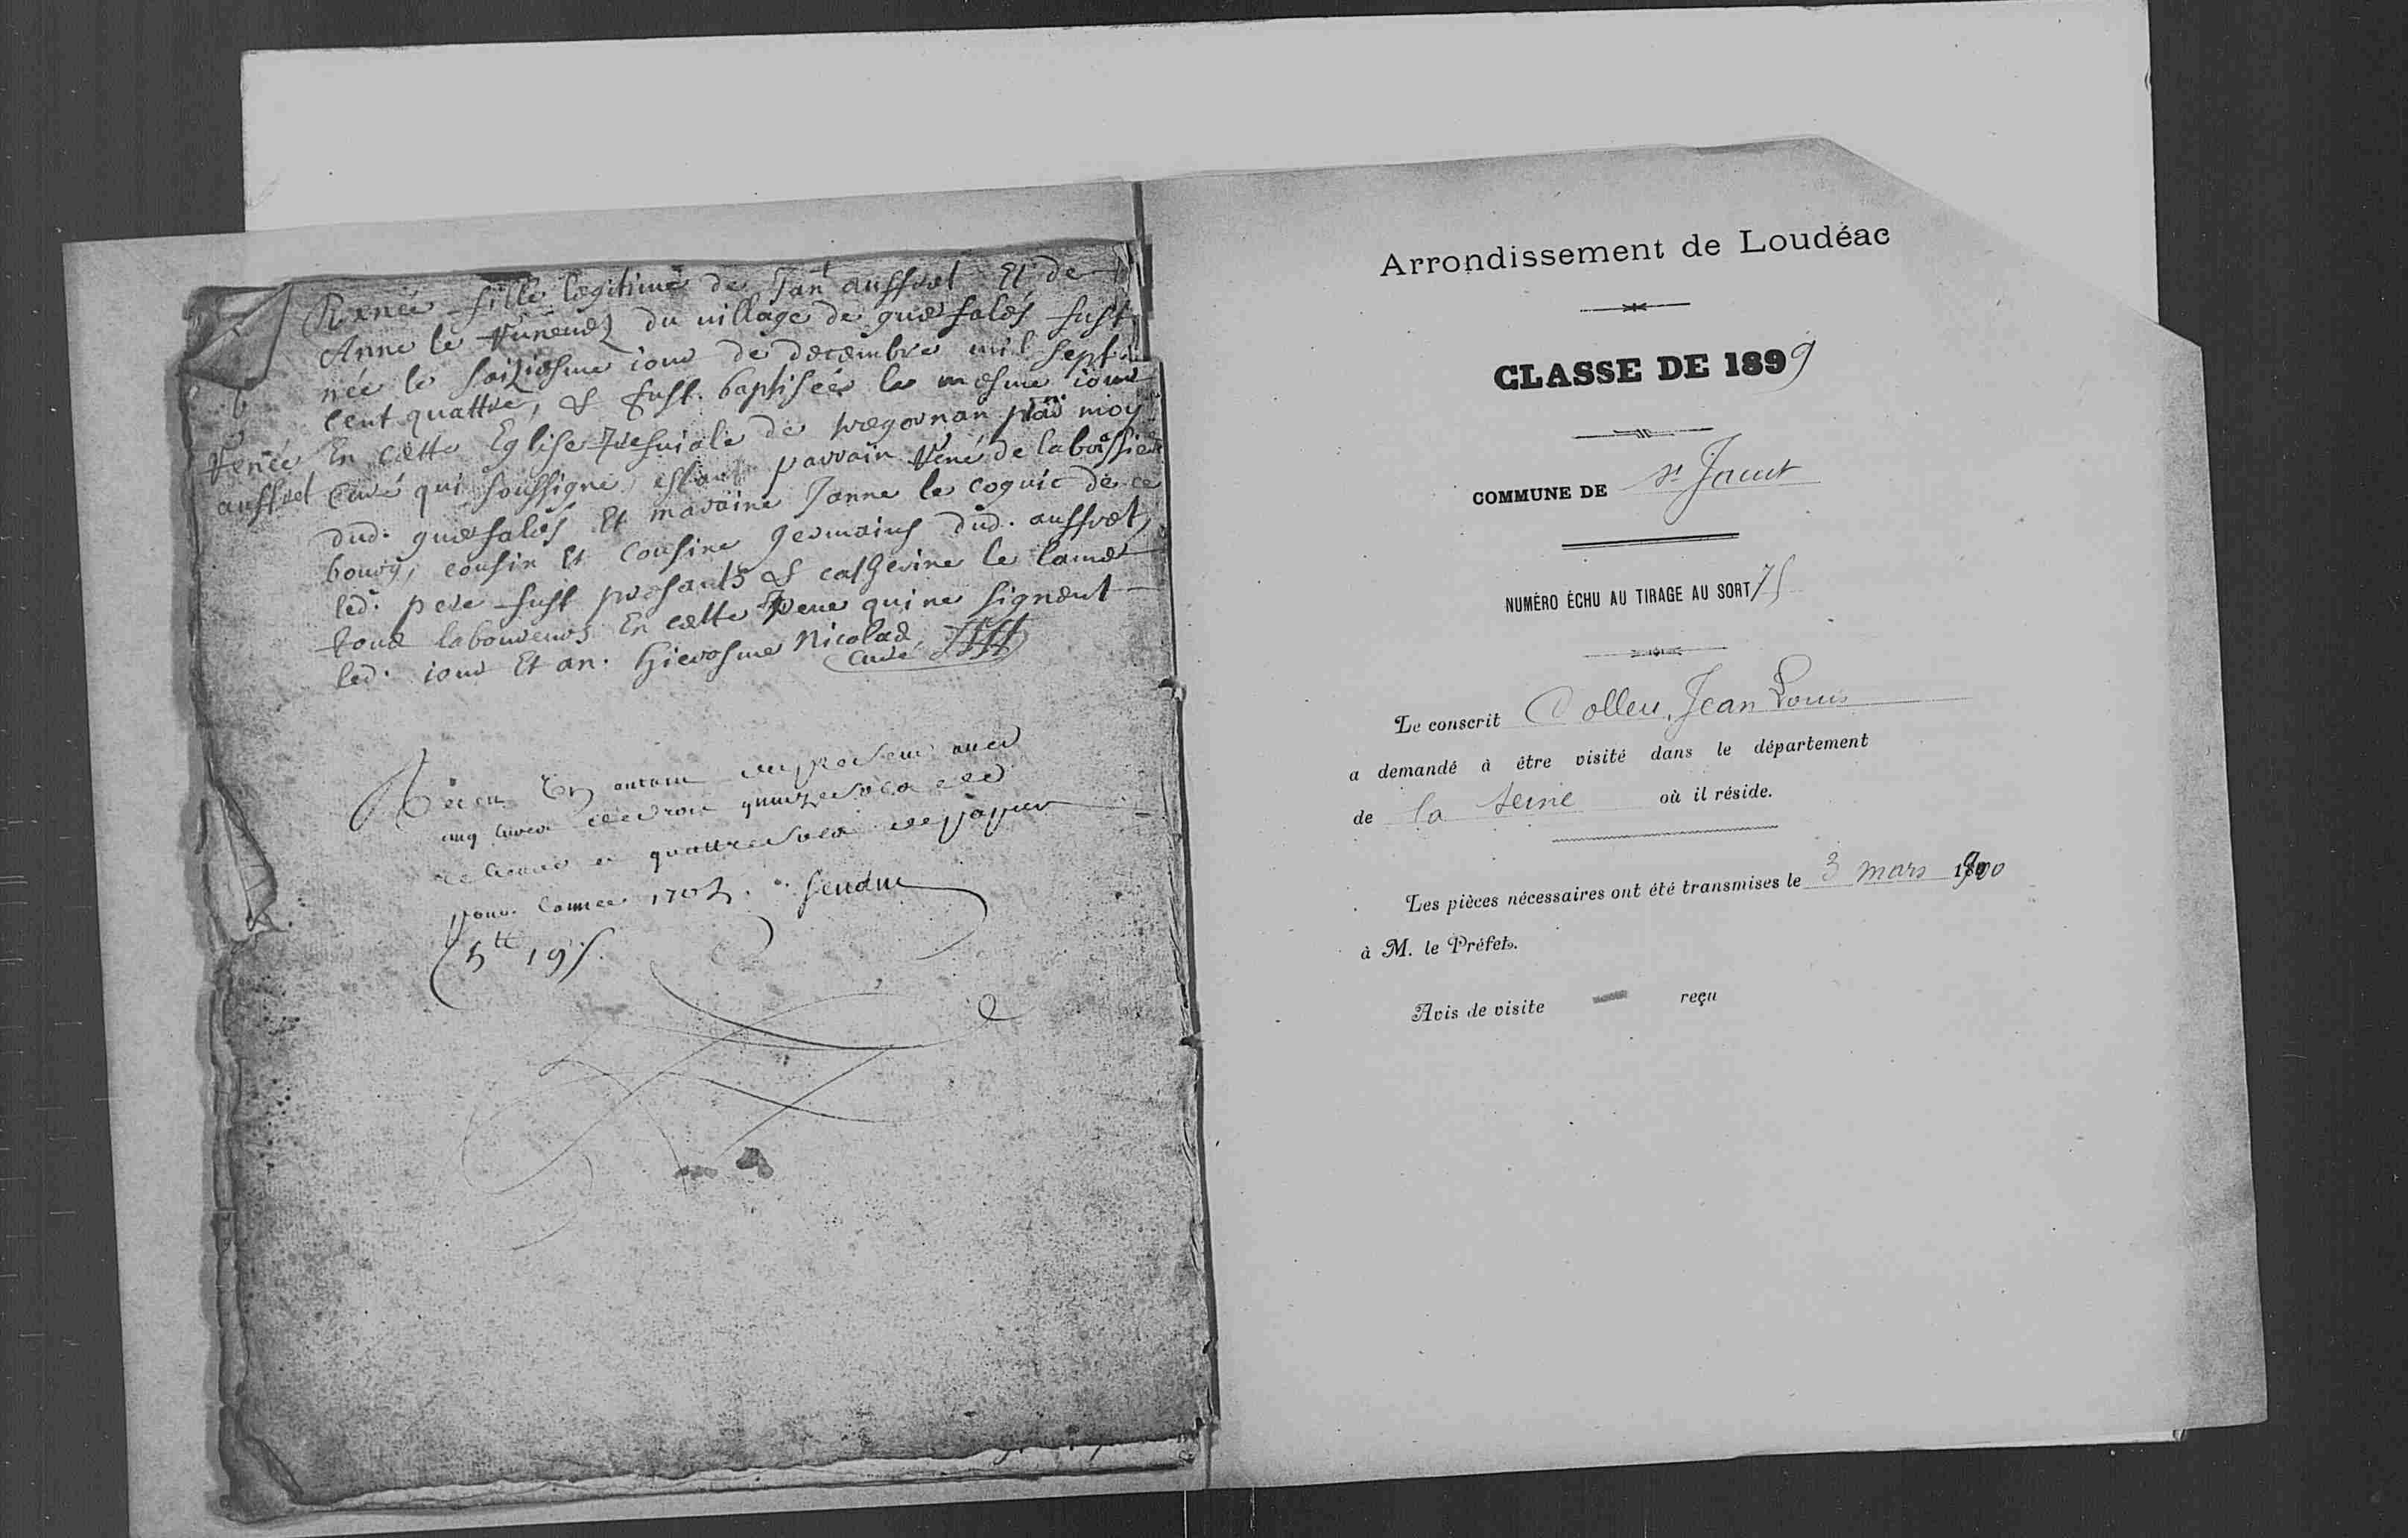 Renée fille legitime de Jan auffret Et de
Anne le du village de fust
née le saiziesme iour de decembre mil sept
cent quattre, & fust baptisée le mesme iour
Renée En cette Eglise de tregornan par moy
auffret Curé qui soussigne, estant parrain René de laboissiere
dud. Et maraine Janne le coquic de ce
bourg, cousin Et Cousine germains dud. auffret,
led. pere fust presants & catherine le lamer
tous laboureurs En cette qui ne signent
led. iour Et an. Hierosme Nicolas,
Curé
Receu En
cinq livres quinze sols
et quattre sols de papier
pour l'année
5 tt 19 s.
Arrondissement de Loudéac
CLASSE DE 1899
COMMUNE DE St Jacut
NUMÉRO ÉCHU AU TIRAGE AU SORT 75
Le conscrit Colleu, Jean Louis
a demandé à être visité dans le département
de la Seine où il réside.
Les pièces nécessaires ont été transmises le 3 mars 1900
à M. le Préfet.
Avis de visite reçu